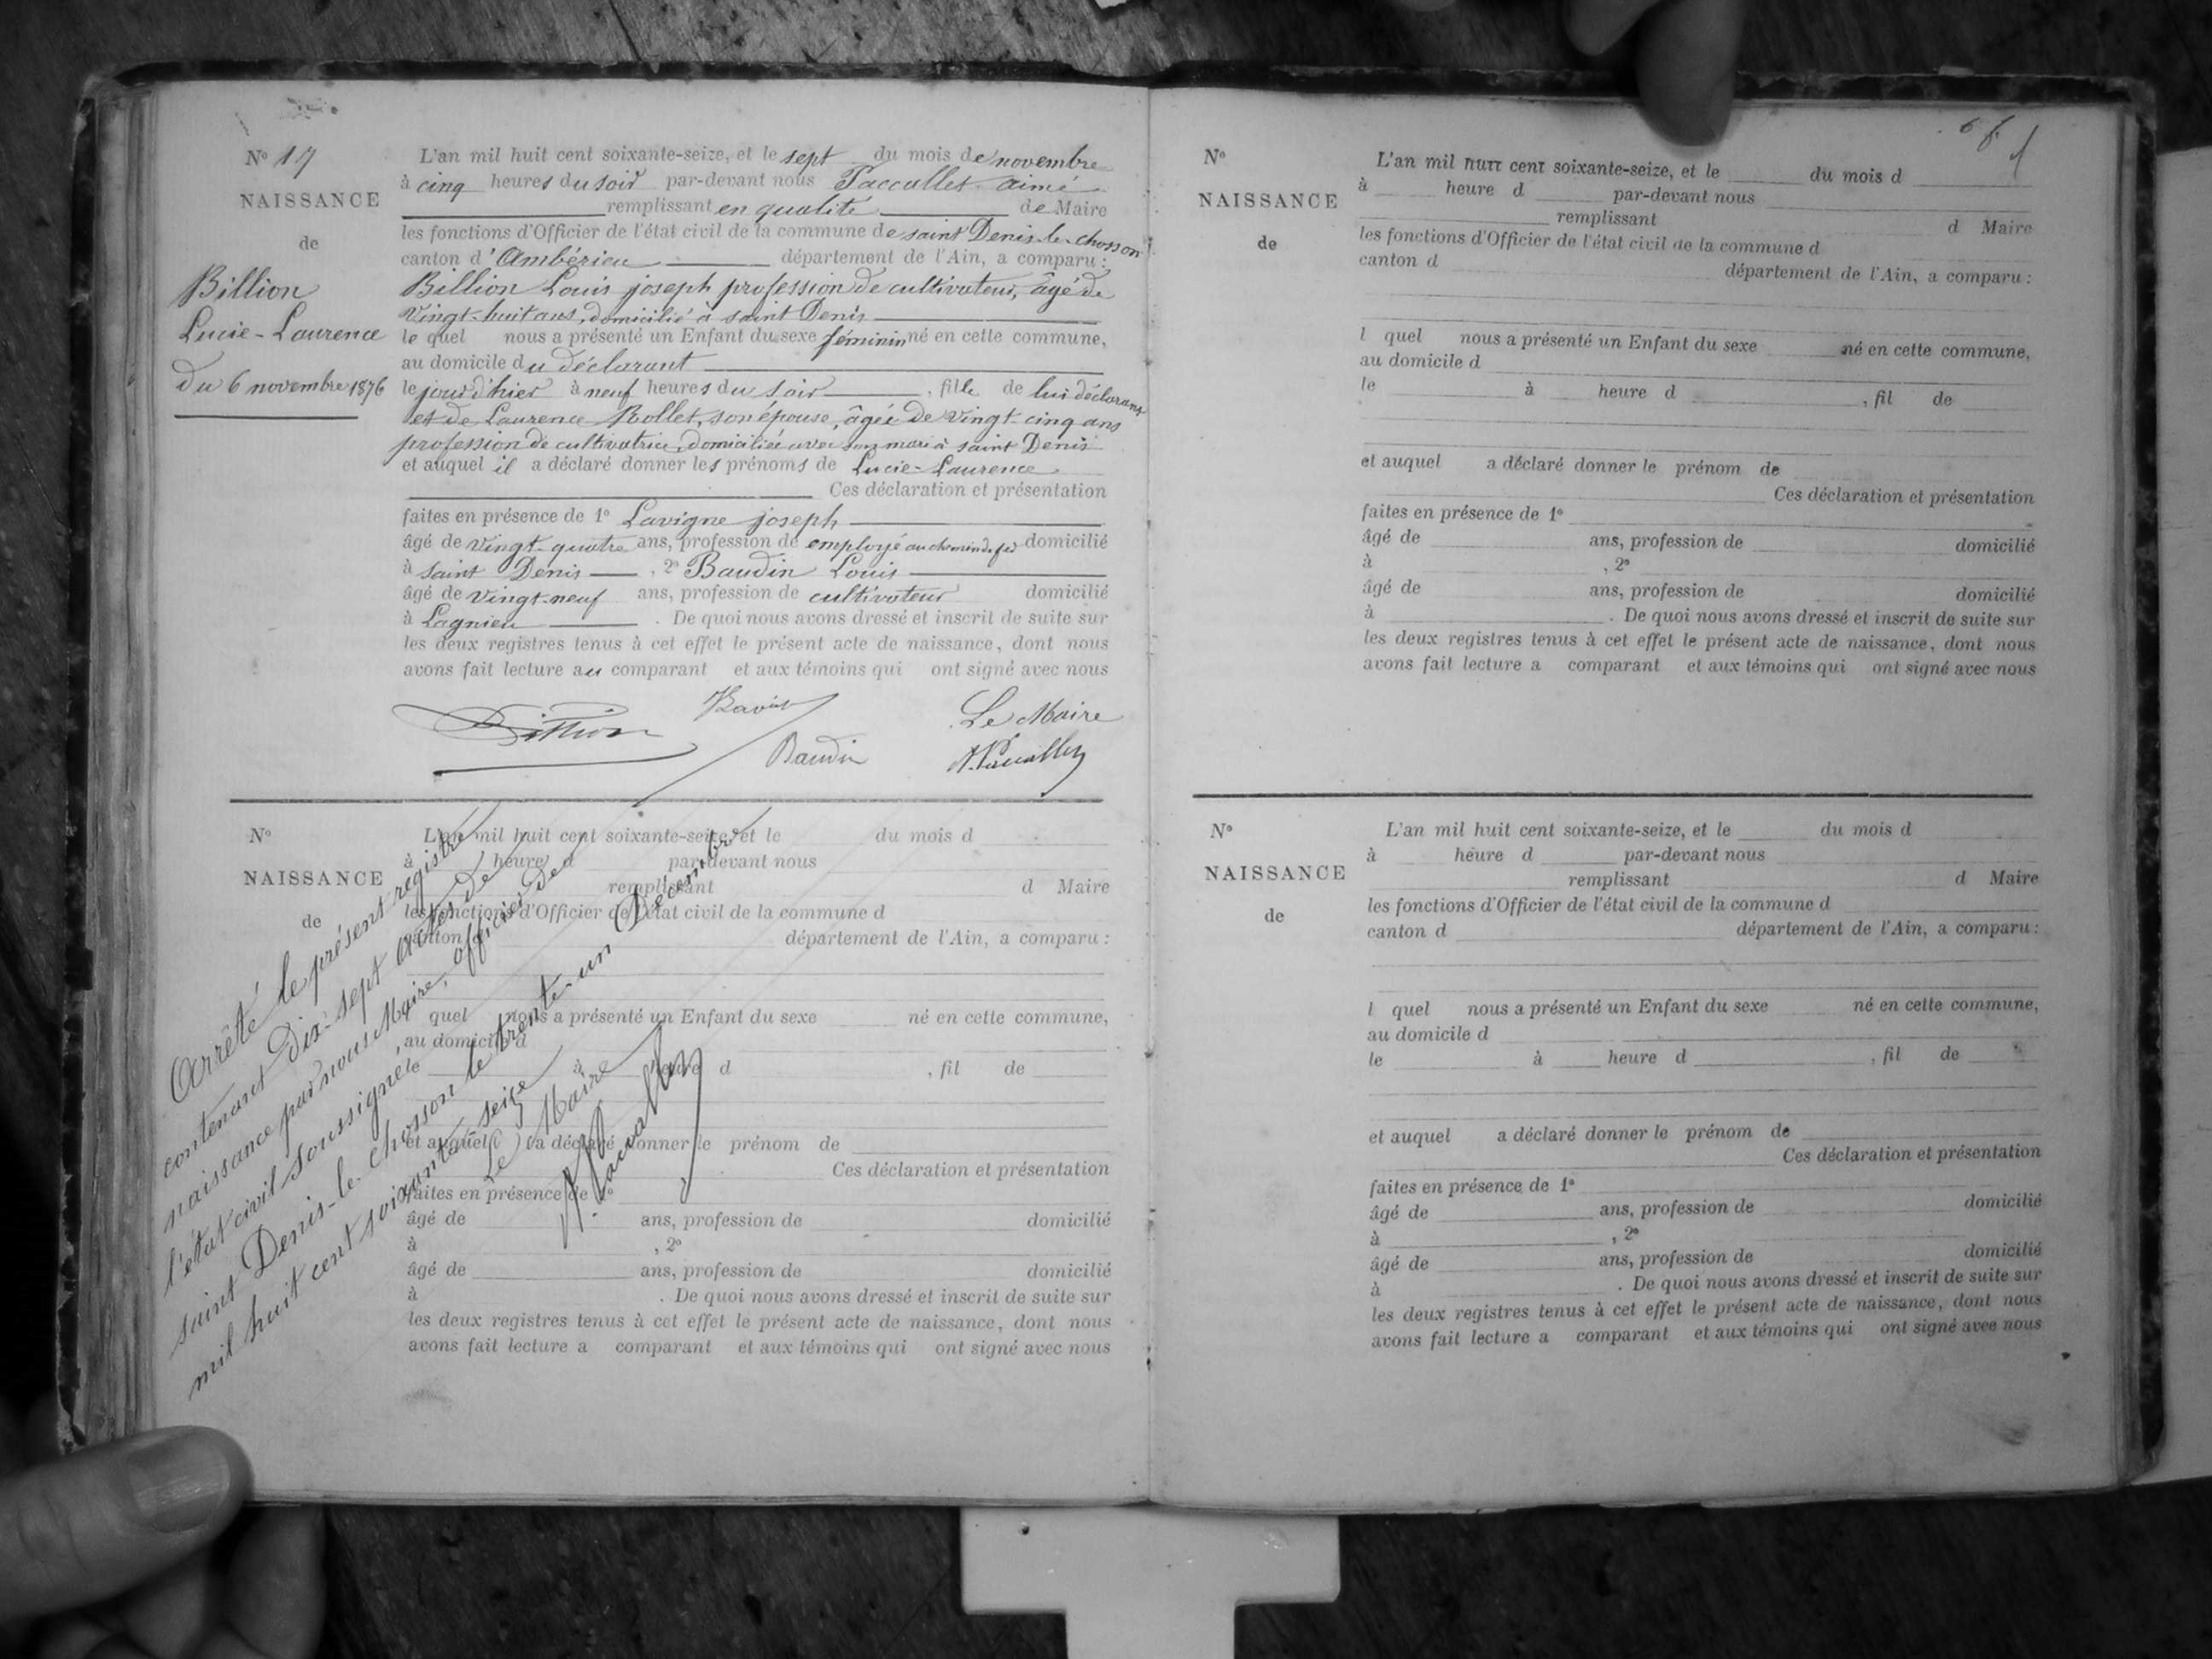 N° 17
NAISSANCE
de
Billion
Lucie-Laurence
du 6 novembre 1876
L'an mil huit cent soixante-seize, et le sept du mois de novembre
à cinq heures du soir par-devant nous Paccallet aimé
remplissant en qualité de Maire
les fonctions d'Officier de l'état civil de la commune de saint Denis-le-chosson
canton d'Ambérieu département de l'Ain, a comparu :
Billion Louis joseph profession de cultivateur, âgé de
vingt-huit ans, domicilié à saint Denis
le quel nous a présenté un Enfant du sexe féminin né en cette commune,
au domicile du déclarant
le jour d'hier à neuf heures du soir, fille de lui déclarant
et de Laurence Rollet, son épouse, âgée de vingt-cinq ans
profession de cultivatrice, domiciliée avec son mari à saint Denis
et auquel il a déclaré donner les prénoms de Lucie-Laurence
Ces déclaration et présentation
faites en présence de 1° Lavigne joseph
âgé de vingt-quatre ans, profession de employé au chemin de fer domicilié
à saint Denis, 2° Baudin Louis
âgé de vingt-neuf ans, profession de cultivateur domicilié
à Lagnieu. De quoi nous avons dressé et inscrit de suite sur
les deux registres tenus à cet effet le présent acte de naissance, dont nous
avons fait lecture au comparant et aux témoins qui ont signé avec nous
Billion
Baudin
Le Maire
A. Paccallet
N°
NAISSANCE
de
L'an mil huit cent soixante-seize, et le du mois d
à heure d par-devant nous
remplissant d Maire
les fonctions d'Officier de l'état civil de la commune d
canton d département de l'Ain, a comparu :
l quel nous a présenté un Enfant du sexe né en cette commune,
au domicile d
le à heure d , fil de
et auquel a déclaré donner le prénom de
Ces déclaration et présentation
faites en présence de 1°
âgé de ans, profession de domicilié
à , 2°
âgé de ans, profession de domicilié
à . De quoi nous avons dressé et inscrit de suite sur
les deux registres tenus à cet effet le présent acte de naissance, dont nous
avons fait lecture a comparant et aux témoins qui ont signé avec nous
Arrêté le présent registre
contenant Dix-sept actes de
naissance par nous Maire, officier de
l'état civil soussigné
saint Denis-le-chosson le trente-un Décembre
mil huit cent soixante-seize
Le Maire
A. Paccallet
N°
NAISSANCE
de
L'an mil huit cent soixante-seize, et le du mois d
à heure d par-devant nous
remplissant d Maire
les fonctions d'Officier de l'état civil de la commune d
canton d département de l'Ain, a comparu :
l quel nous a présenté un Enfant du sexe né en cette commune,
au domicile d
le à heure d , fil de
et auquel a déclaré donner le prénom de
Ces déclaration et présentation
faites en présence de 1°
âgé de ans, profession de domicilié
à , 2°
âgé de ans, profession de domicilié
à . De quoi nous avons dressé et inscrit de suite sur
les deux registres tenus à cet effet le présent acte de naissance, dont nous
avons fait lecture a comparant et aux témoins qui ont signé avec nous
N°
NAISSANCE
de
L'an mil huit cent soixante-seize, et le du mois d
à heure d par-devant nous
remplissant d Maire
les fonctions d'Officier de l'état civil de la commune d
canton d département de l'Ain, a comparu :
l quel nous a présenté un Enfant du sexe né en cette commune,
au domicile d
le à heure d , fil de
et auquel a déclaré donner le prénom de
Ces déclaration et présentation
faites en présence de 1°
âgé de ans, profession de domicilié
à , 2°
âgé de ans, profession de domicilié
à . De quoi nous avons dressé et inscrit de suite sur
les deux registres tenus à cet effet le présent acte de naissance, dont nous
avons fait lecture a comparant et aux témoins qui ont signé avec nous